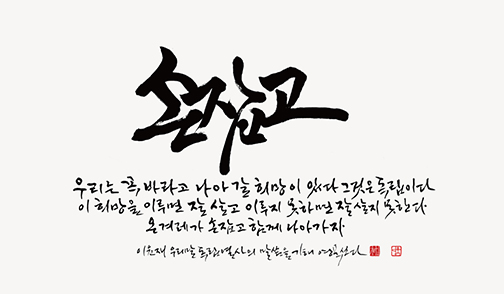 손잡고
우리는 꼭, 바라고 나아갈 희망이 있다 그것은 독립이다
이 희망을 이루면 잘 살고 이루지 못하면 잘 살지 못한다
온겨레가 손잡고 함께 나아가자
이윤재 우리말 독립 열사의 말씀을 기려 쓰다